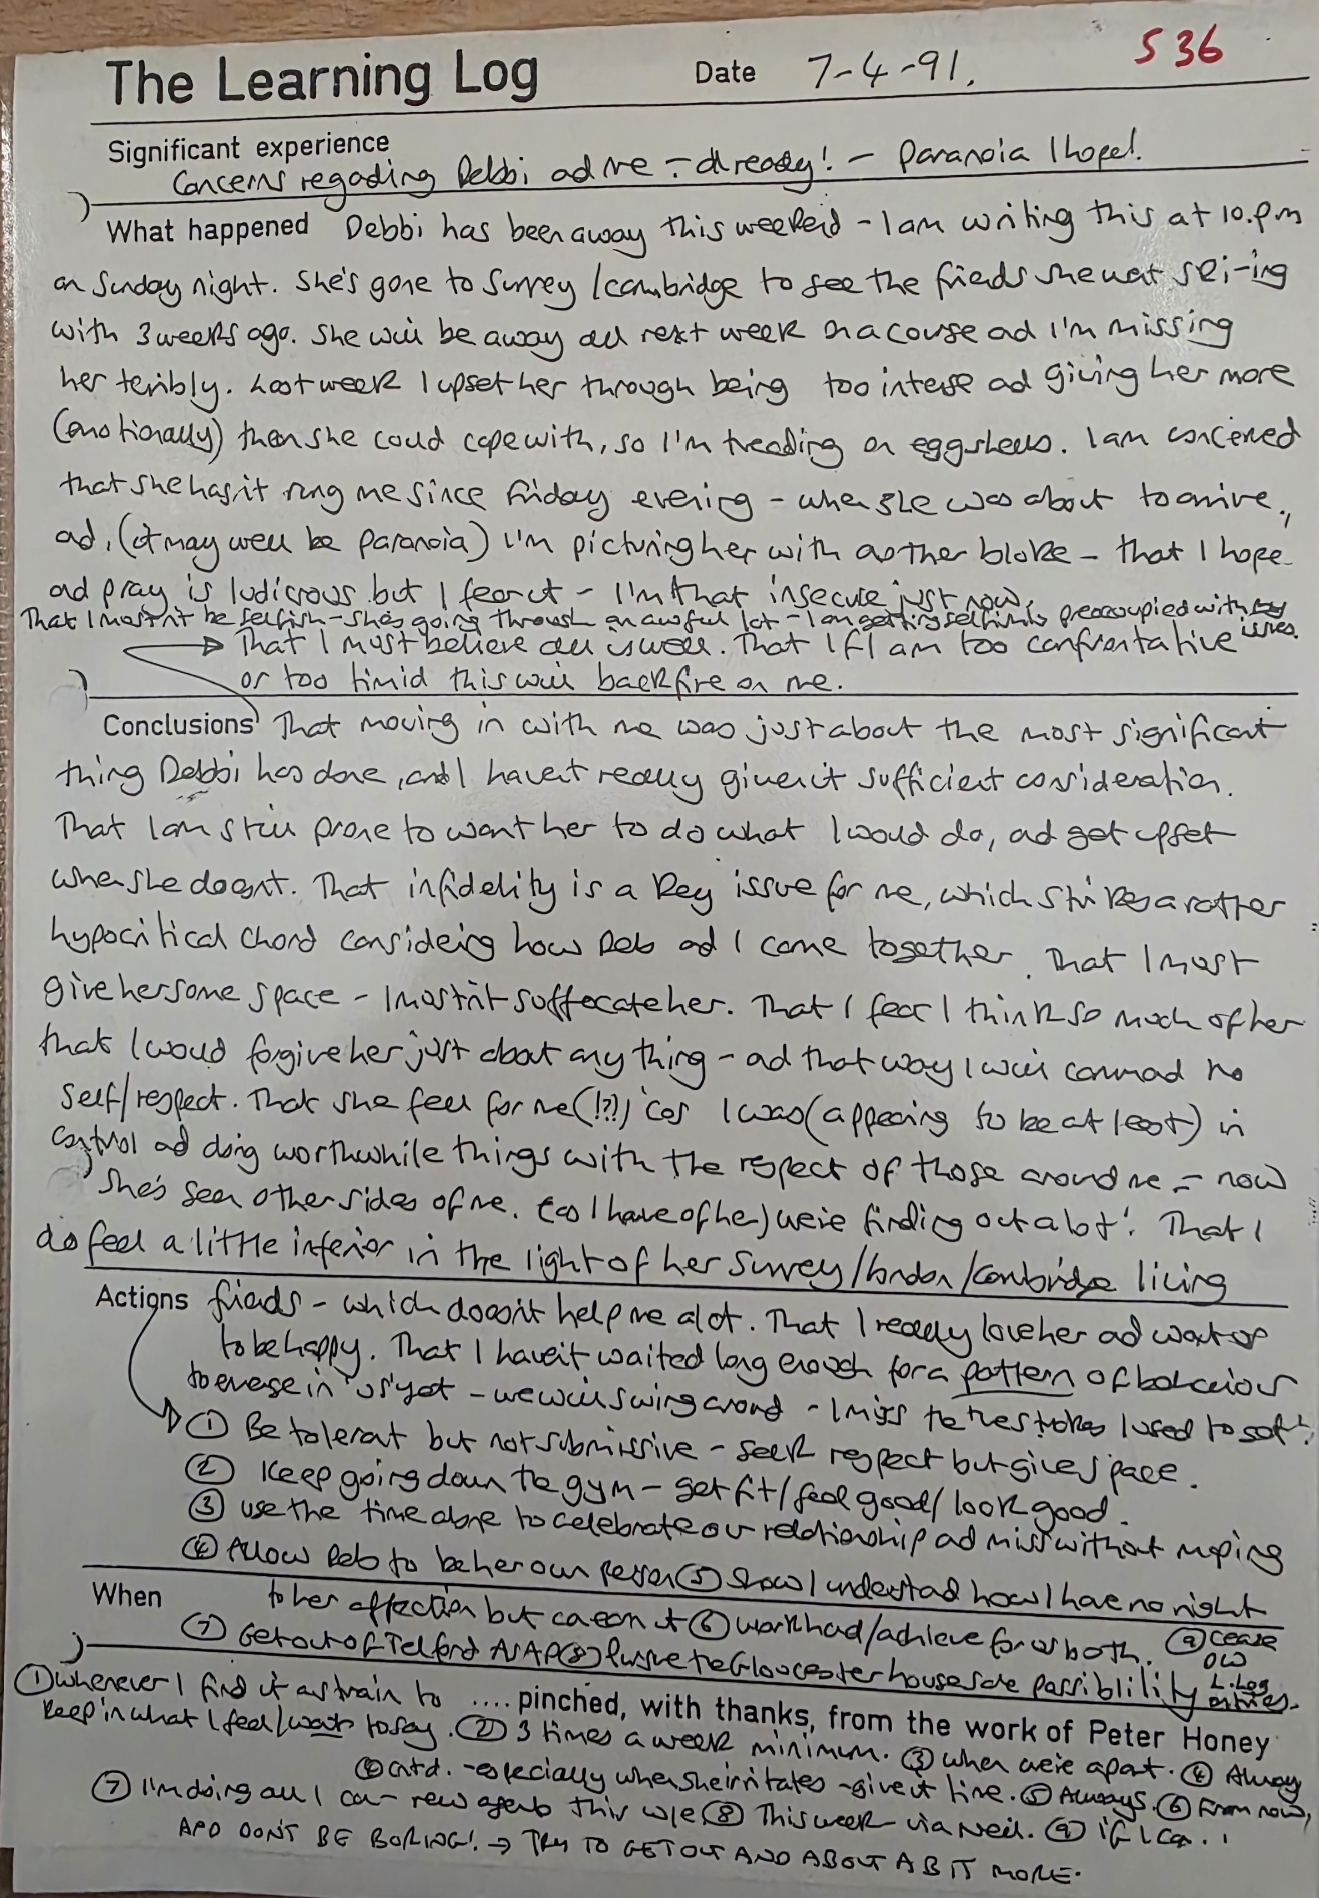 S 36
The Learning Log Date 7-4-91.
Significant experience
Concerns regarding Debbi and me - already! - Paranoia I hope!
What happened Debbi has been away this weekend - I am writing this at 10.pm
on Sunday night. She's gone to Surrey / Cambridge to see the friends she wat ski-ing
with 3 weeks ago. She will be away all next week on a course and I'm missing
her terribly. Last week I upset her through being too intense and giving her more
(emotionally) than she could cope with, so I'm treading on eggshells. I am concerned
that she hasn't rung me since Friday evening - when she was about to arrive,
and, (it may well be paranoia) I'm picturing her with another bloke - that I hope
and pray is ludicrous but I fear it - I'm that insecure just now.
That I mustn't be selfish - she's going through an awful lot - I am getting selfishly preoccupied with my issues.
That I must believe all is well. That if I am too confrontative
or too timid this will backfire on me.
Conclusions That moving in with me was just about the most significant
thing Debbi has done, and I haven't really given it sufficient consideration.
That I am still prone to want her to do what I would do, and get upset
when she doesn't. That infidelity is a key issue for me, which strikes a rather
hypocritical chord considering how Deb and I came together. That I must
give her some space - I mustn't suffocate her. That I fear I think so much of her
that I would forgive her just about anything - and that way I will command no
self/respect. That she feel for me (!?) 'cos I was (appearing to be at least) in
control and doing worthwhile things with the respect of those around me - now
she's seen other sides of me. (as I have of her) we're finding out a lot! That I
do feel a little inferior in the light of her Surrey/London/Cambridge living
Actions friends - which doesn't help me a lot. That I really love her and want us
to be happy. That I haven't waited long enough for a pattern of behaviour
to emerge in 'us' yet - we will swing around - I miss the strokes I used to get!
① Be tolerant but not submissive - seek respect but give space.
② Keep going down the gym - get fit/feel good/look good.
③ use the time alone to celebrate our relationship and miss without moping
④ Allow Deb to be her own person ⑤ Show I understand how I have no right
When to her affection but can earn it ⑥ work hard/achieve for us both. ⑨ Cease
⑦ Get out of Telford ASAP ⑧ Pursue the Gloucester house sale possibility
L. Log entries.
① Whenever I find it a strain to .... pinched, with thanks, from the work of Peter Honey
keep in what I feel/want to say. ② 3 times a week minimum. ③ when we're apart. ④ Always
④ cntd. - especially when she irritates - give it time. ⑤ Always. ⑥ From now,
⑦ I'm doing all I can - new agents this w/e ⑧ This week via Neil. ⑨ if I can..
AND DON'T BE BORING! → TRY TO GET OUT AND ABOUT A BIT MORE.